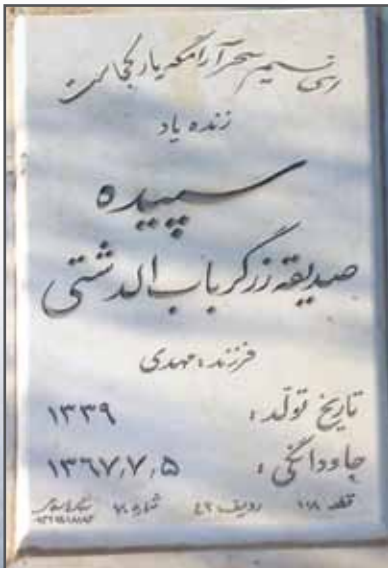 ای نسیم سحر آرامگه یار کجاست
زنده یاد
سپیده
صدیقه زرگر باب الدشتی
فرزند: مهدی
تاریخ تولّد: ۱۳۳۹
جاودانگی: ۱۳۶۷٫۷٫۵
قطعه ۱۰۸ ردیف ۴۲ شماره ۷۰